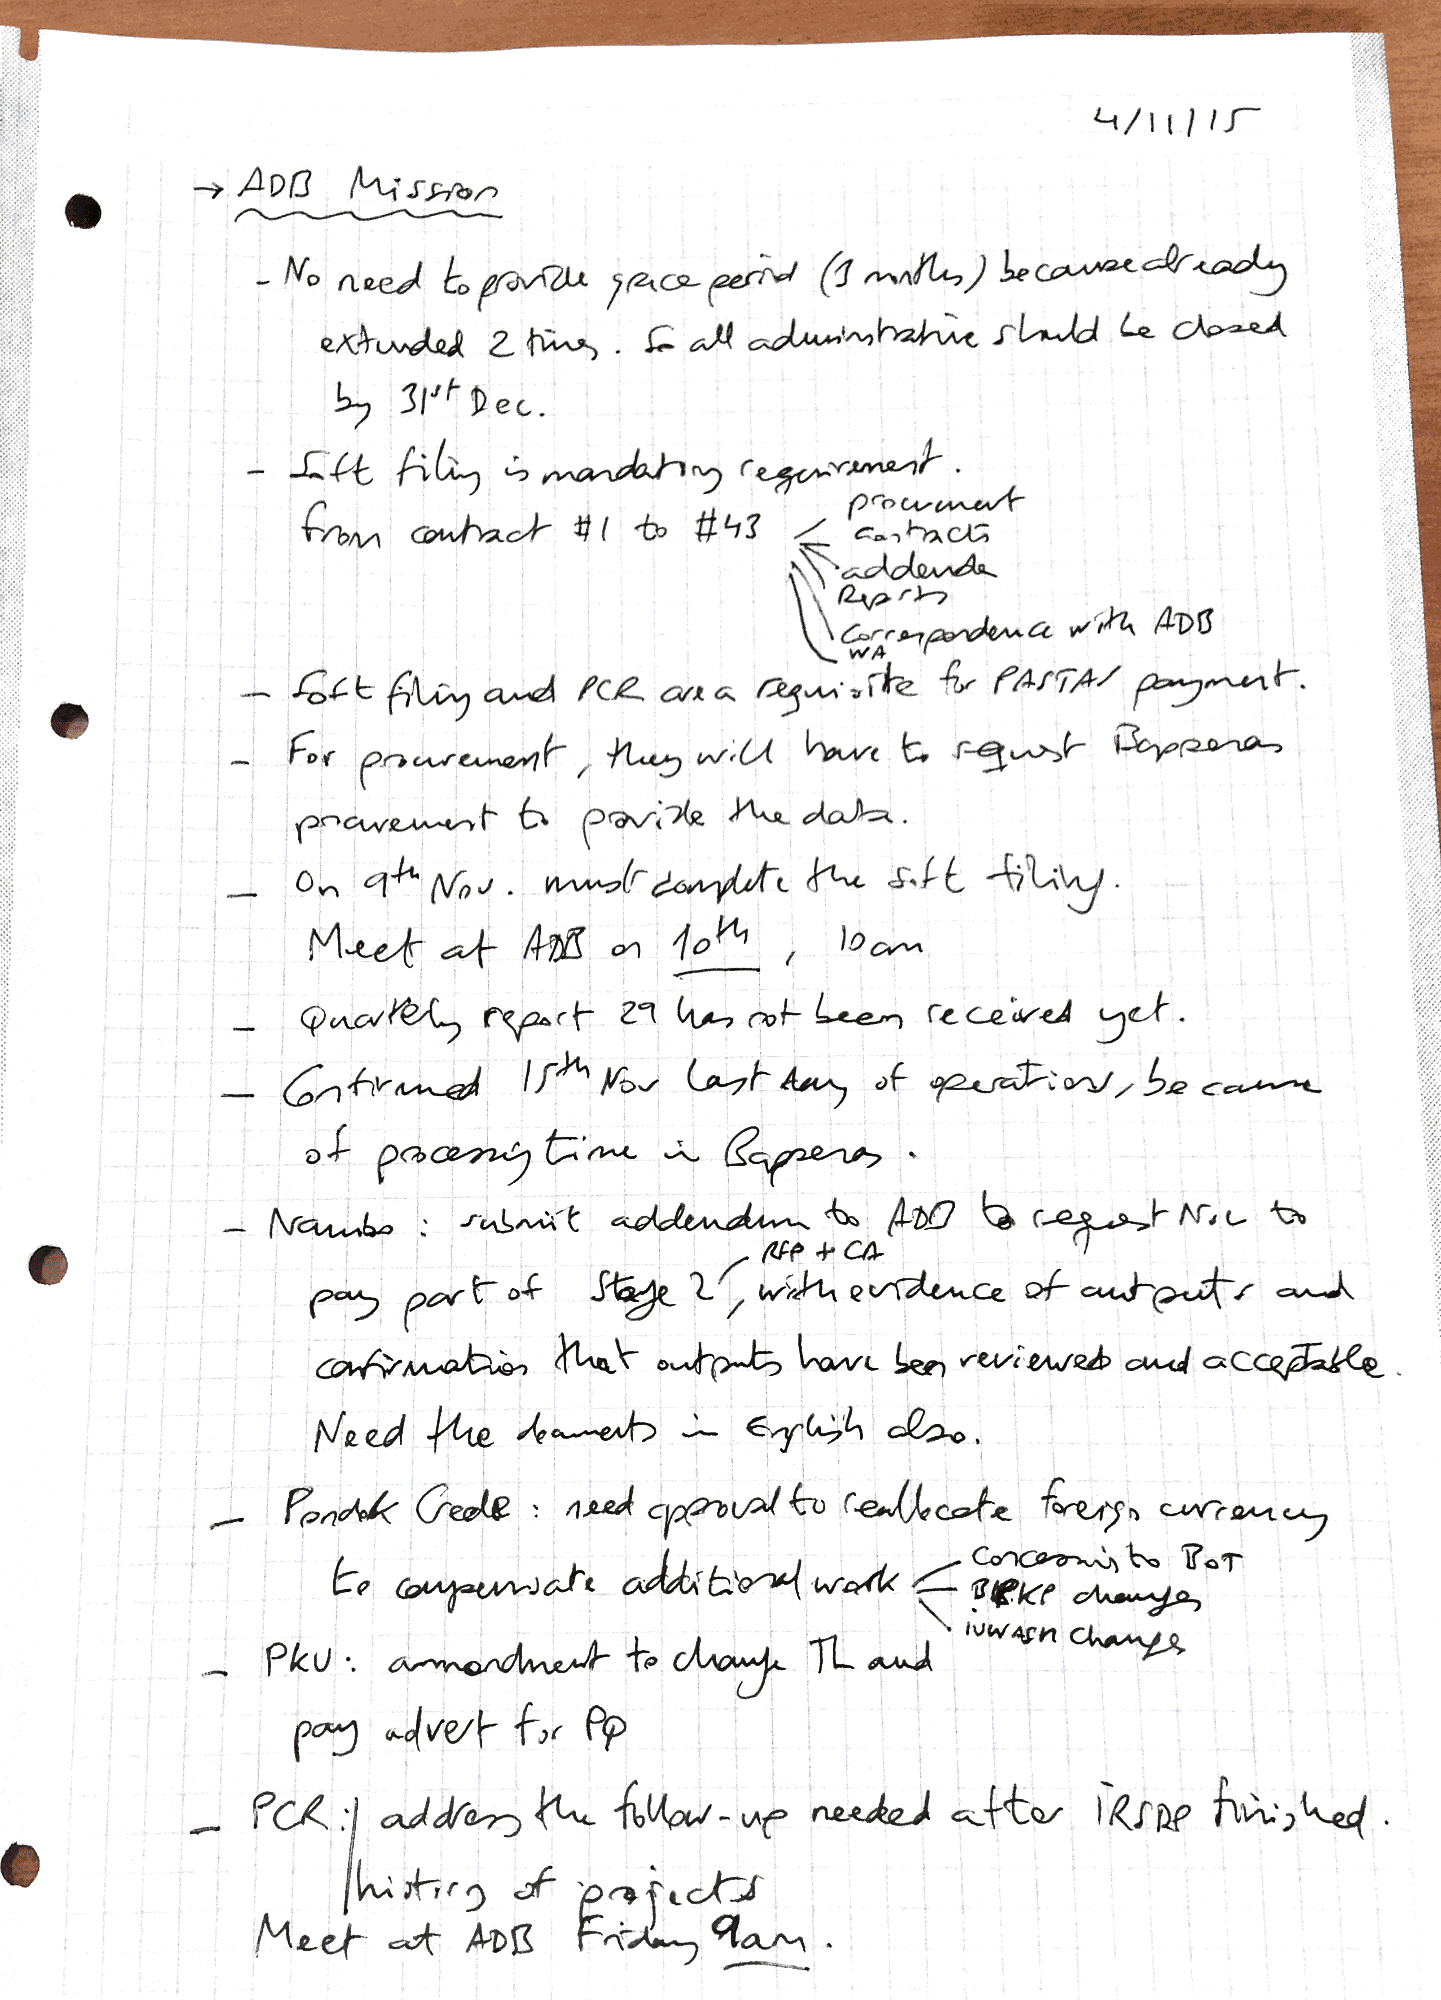 4/11/15
→ ADB Mission
- No need to provide grace period (3 months) because already
extended 2 times. So all administrative should be closed
by 31st Dec.
- Soft filing is mandatory requirement.
from contract #1 to #43
procurement
contracts
addenda
Reports
Correspondence with ADB
WA
- Soft filing and PCR are a requisite for PASTAS payment.
- For procurement, they will have to request Bappenas
procurement to provide the data.
- On 9th Nov. must complete the soft filing.
Meet at ADB on 10th, 10am
- Quarterly report 29 has not been received yet.
- Confirmed 15th Nov last day of operations, because
of processing time in Bappenas.
- Nambo: submit addendum to ADB to request NOL to
RFP + CA
pay part of Stage 2, with evidence of outputs and
confirmation that outputs have been reviewed and acceptable.
Need the documents in English also.
- Pondok Gede: need approval to reallocate foreign currency
to compensate additional work
Concession to BOT
BPKP changes
iUWASH changes
- PKU: ammendment to change TL and
pay advert for PQ
- PCR: address the follow-up needed after IRSDP finished.
history of projects
Meet at ADB Friday 9am.